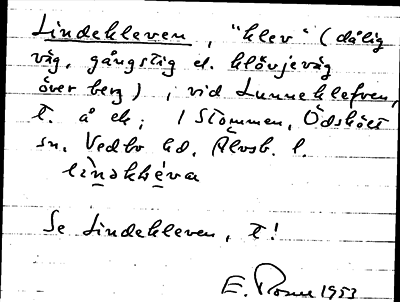 Lindekleven, "klev" (dålig
väg, gångstig el. klövjeväg
över berg), vid Lunneklefven,
t. å ek; i Stommen, Ödsköls
sn. Vedbo hd. Älvsb. l.
Se Lindekleven, t!
E. 1953